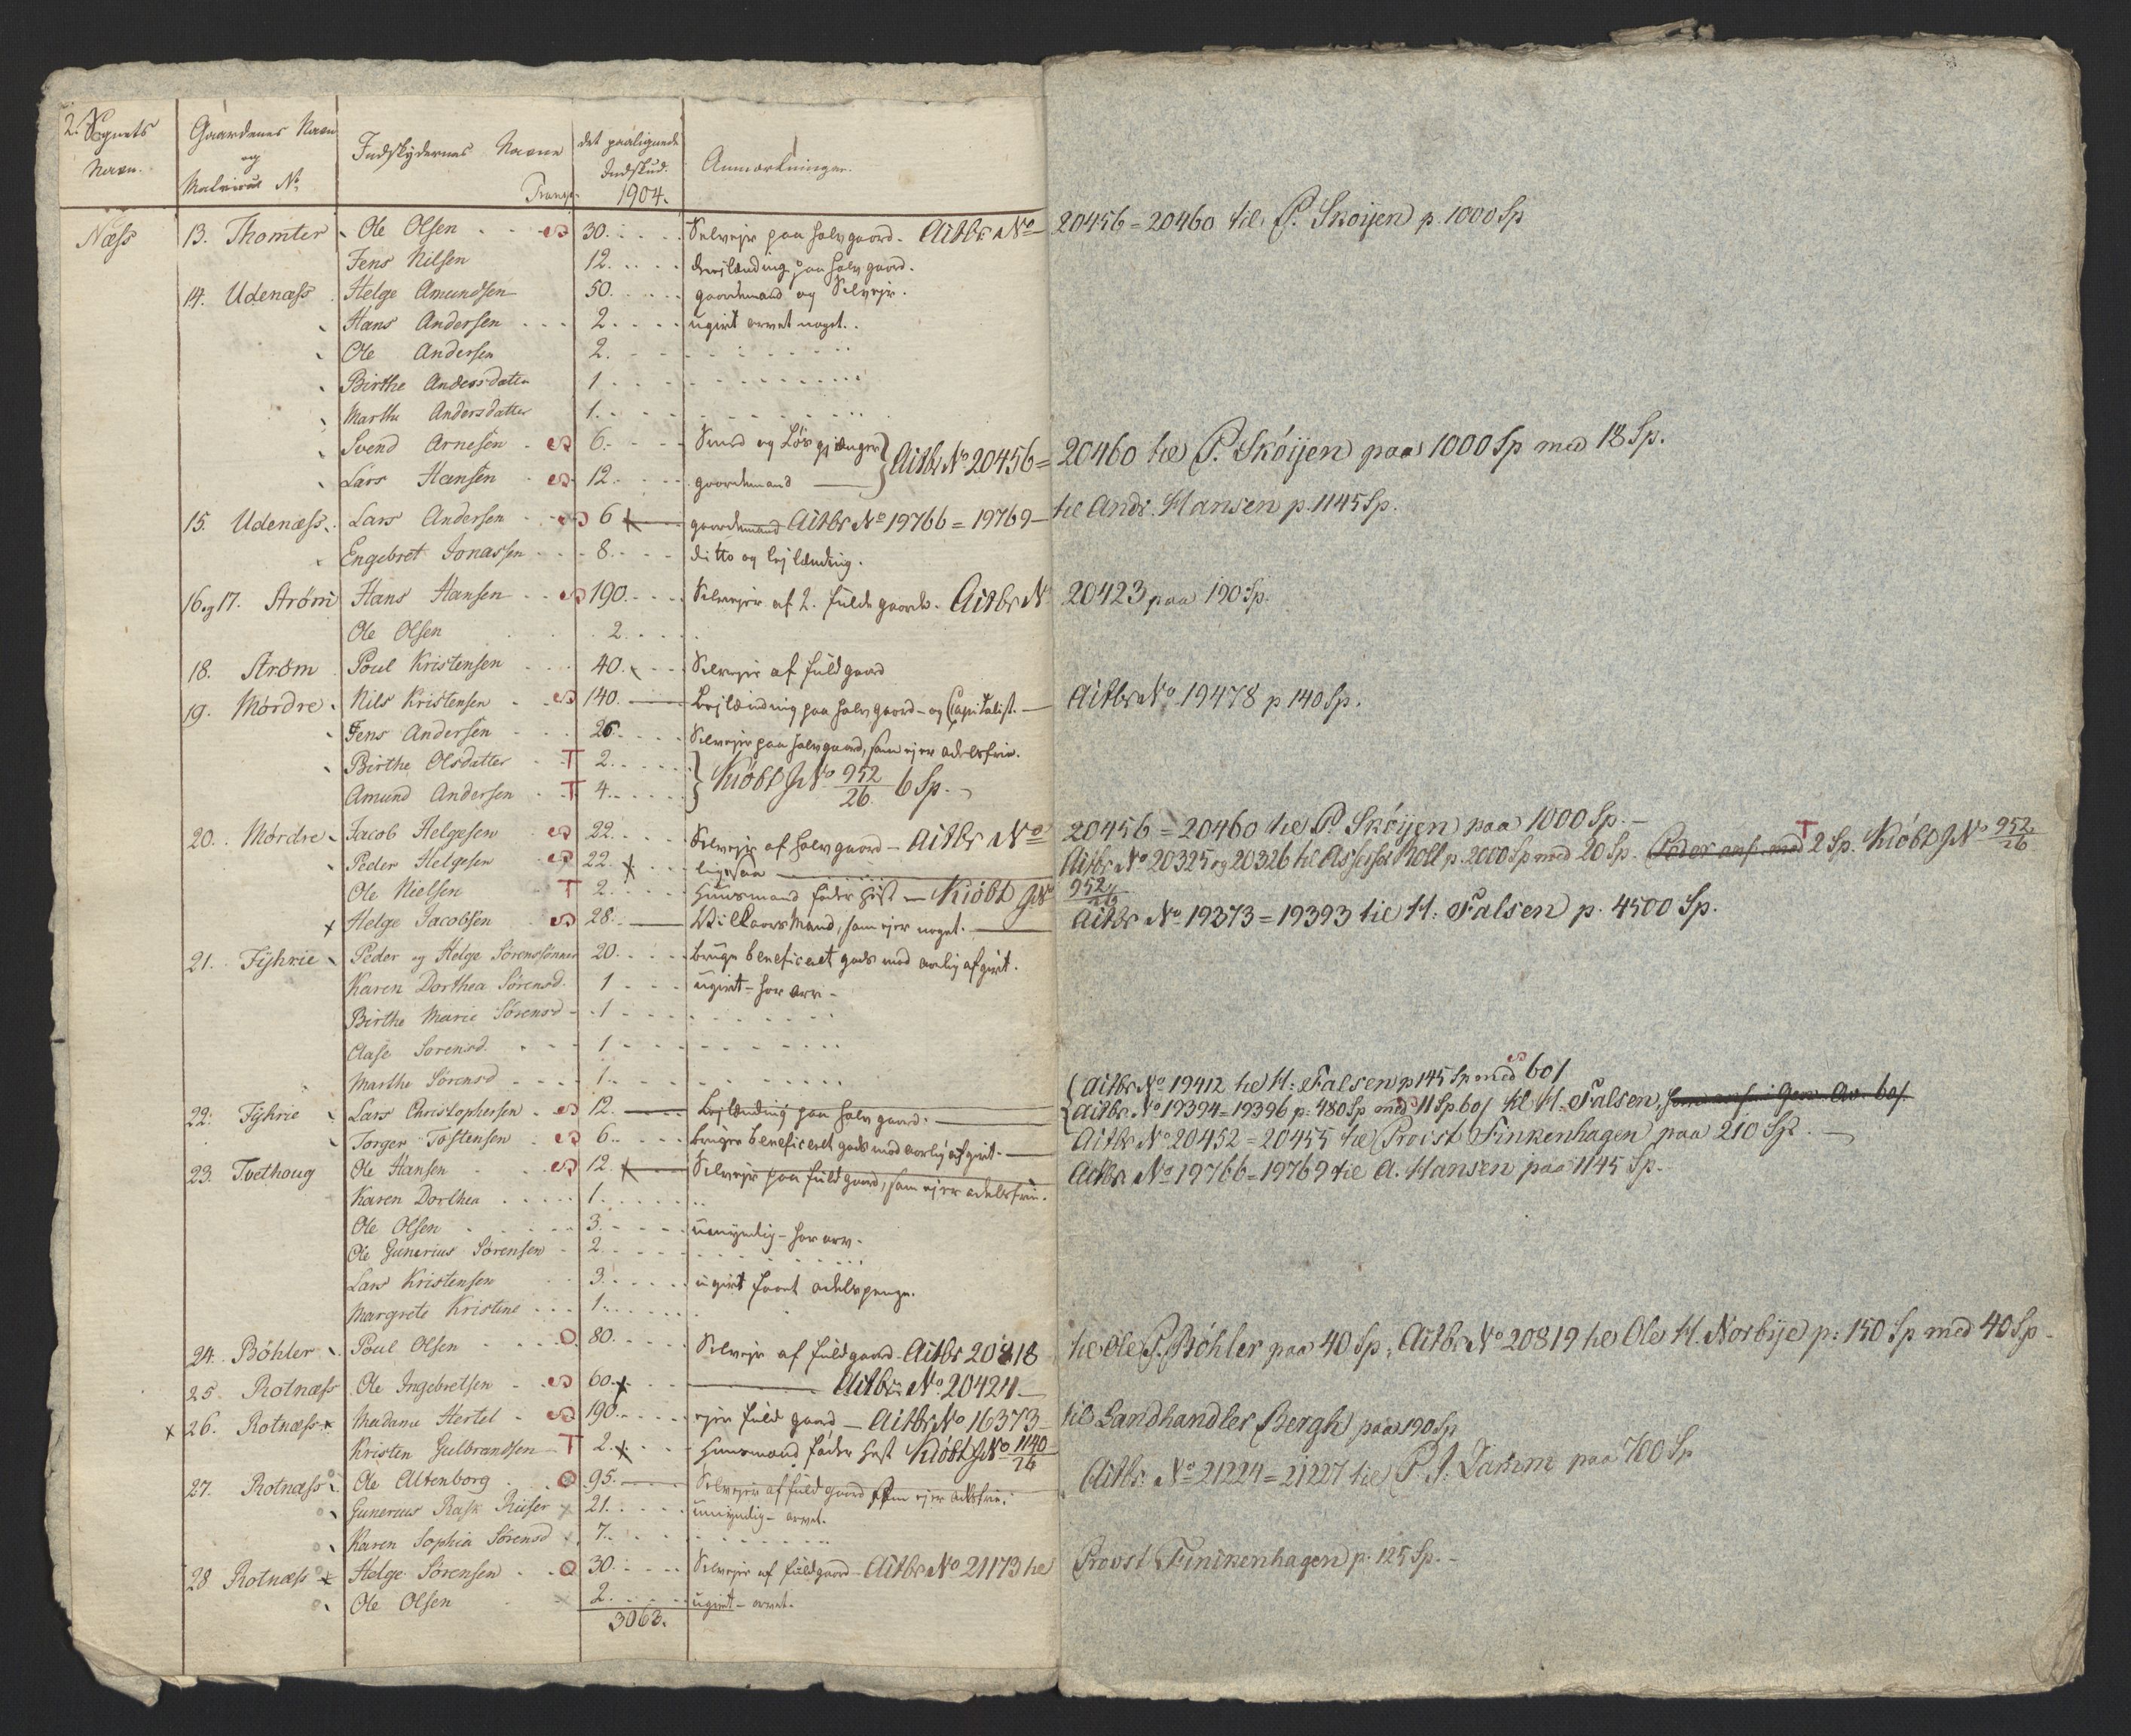 2. Sognets Navn. Gaardenes Navn og Matricul No. Indskydernes Navne det paalignede Indskud. Anmærkninger.
Transp. 1904.
Næss 13. Thomter Ole Olsen 30. Selvejer paa halvgaard. Aitbr No 20456=20460 til P. Skøijen p. 1000 Sp
Jens Nilsen 12. Lejlænding paa halv gaard.
14. Udenæss Helge Amundsen 50. gaardmand og Selvejer.
Hans Andersen 2. ugivt arvet noget.
Ole Andersen 2.
Birthe Andersdatter 1
Marthe Andersdatter 1.
Svend Arnesen 6. Smed og Løsgjænger } Aitbr No 20456= 20460 til P. Skøijen paa 1000 Sp med 18 Sp.
Lars Hansen 12. gaardmand
15. Udenæss. Lars Andersen 6 gaardmand Aitbr No 19766=19769 til Andr. Hansen p. 1145 Sp.
Engebret Jonassen 8. ditto og lejlænding.
16 og 17. Strøm Hans Hansen 190. Selvejer af 2. fulde gaarde. Aitbr N 20423 paa 190 Sp.
Ole Olsen 2.
18. Strøm Poul Kristensen 40. Selvejer af fuldgaard
19. Mørdre Nils Kristensen 140. Lejlænding paa halv gaard og Capitalist. Aitbr No 19478 p 140 Sp.
Jens Andersen 26. Selvejer paa halvgaard, som ejer odelsfrie.
Birthe Olsdatter T 2. } Kiøbt J No 952/26 6 Sp.
Amund Andersen T 4.
20. Mørdre Jacob Helgesen 22. Selvejer af halvgaard Aitbr No 20456=20460 til P. Skøijen paa 1000 Sp.
Peder Helgesen 22. ligesaa Aitbr No 20325 og 20326 til Assessor Roll p. 2000 Sp med 20 Sp. T 2 Sp. Kiøbt J No 952/26
Ole Nielsen T 2. Huusmand føder Hest Kiøbt J No 952/26
x Helge Jacobsen 28. Vilkaarsmand, som ejer noget. Aitbr No 19373=19393 til H: Falsen p. 4500 Sp.
21. Fijhrie Peder og Helge Sørenssønner 20. bruger beneficeret gods mod aarlig afgivt.
Karen Dorthea Sørensd. 1 ugivt har arv
Birthe Marie Sørensd 1
Aase Sørensd. 1
Marthe Sørensd 1.
{ Aitbr No 19412 til H: Falsen p 145 Sp med 60 s
22. Fijhrie Lars Christophersen 12. Lejlænding paa halv gaard. Aitbr. No 19394=19396 p. 480 Sp med 11 Sp 60 s til H. Falsen,
Torger Tostensen 6. bruger beneficeret gods mod aarlig afgivt. Aitbr No 20452=20455 til Provst Finkenhagen paa 210 Sp.
23. Tvethoug Ole Hansen 12. Selvejer paa fuldgaard, som ejer odelsfrie. Aitbr No 19766=19769 til A. Hansen paa 1145 Sp.
Karen Dorthea 1.
Ole Olsen 3. umyndig har arv.
Ole Gunerius Sørensen 2.
Lars Kristensen 3. ugivt faaet odelspenge.
Margrete Kristine 1.
24. Bøhler Poul Olsen 80. Selvejer af fuldgaard Aitbr 20818 til Ole P. Bøhler paa 40 Sp, Aitbr No 20819 til Ole H. Norbije p: 150 Sp med 40 Sp
25. Rotnæss Ole Ingebretsen 60. Aitbr No. 20424
x 26. Rotnæss Madame Hertel 190. ejer fuld gaard Aitbr No 16373 til Landhandler Bergh paa 190 Sp
Kristen Gulbrandsen T 2. Huusmand føder Hest Kiøbt J No 1140/26
27. Rotnæss Ole Altenborg 95. Selvejer af fuldgaard som ejer odelsfrie. Aitbr: No 21224=21227 til P. J. Damm paa 700 Sp
Gunerius Rask Riiser 21. umyndig arvet.
Karen Sophia Sørensd 7.
28 Rotnæss Helge Sørensen 30. Selvejer af fuldgaard Aitbr No 21173 til Provst Finkenhagen p. 125 Sp.
Ole Olsen 2. ugivt arvet.
3063.